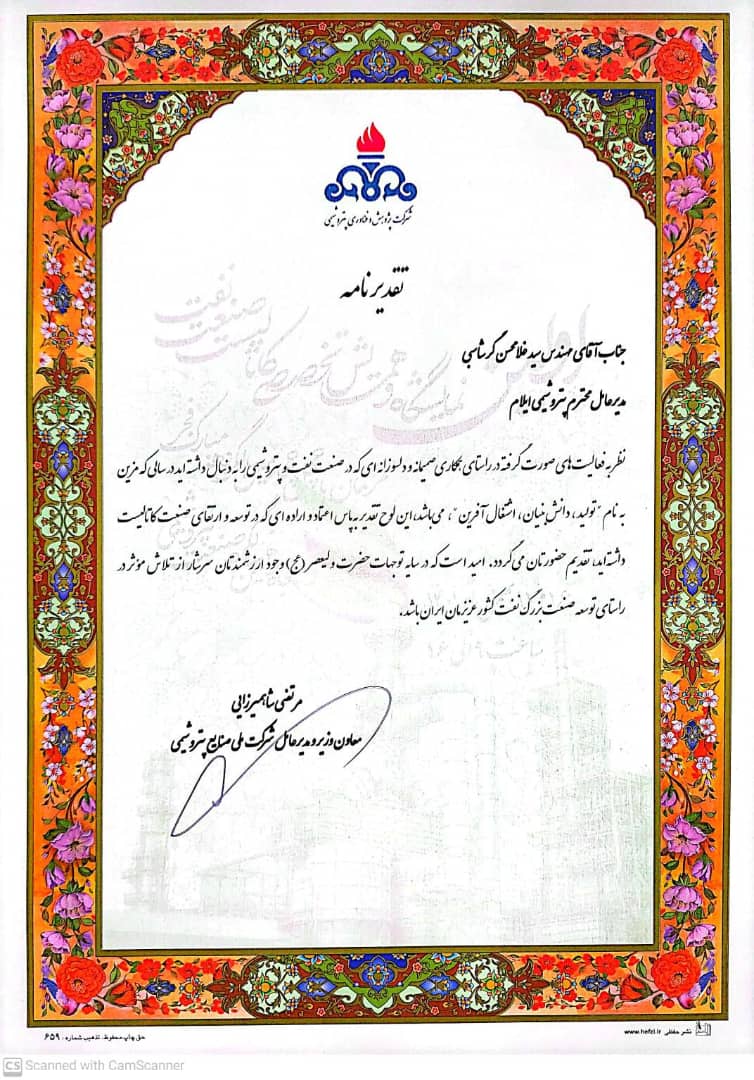 شرکت پژوهش و فناوری پتروشیمی
تقدیرنامه
جناب آقای مهندس سید غلامحسن گرشاسبی
مدیرعامل محترم پتروشیمی ایلام
نظر به فعالیت‌های صورت گرفته در راستای همکاری صمیمانه و دلسوزانه ای که در صنعت نفت و پتروشیمی را به دنبال داشته اید در سالی که مزین
به نام "تولید، دانش بنیان، اشتغال آفرین"، می‌باشد، این لوح تقدیر به پاس اعتماد و اراده ای که در توسعه و ارتقای صنعت کاتالیست
داشته‌اید، تقدیم حضورتان می گردد. امید است که در سایه توجهات حضرت ولیعصر (عج) وجود ارزشمندتان سرشار از تلاش مؤثر در
راستای توسعه صنعت بزرگ نفت کشور عزیزمان ایران باشد.
مرتضی شاهمیرزایی
معاون وزیر و مدیرعامل شرکت ملی صنایع پتروشیمی
اولین
نمایشگاه و همایش تخصصی کاتالیست صنعت نفت
ساعت ۹ الی ۱۶
نشر حفظی www.hefzi.ir
حق چاپ محفوظ. تذهیب شماره: ۶۵۹
CS Scanned with CamScanner